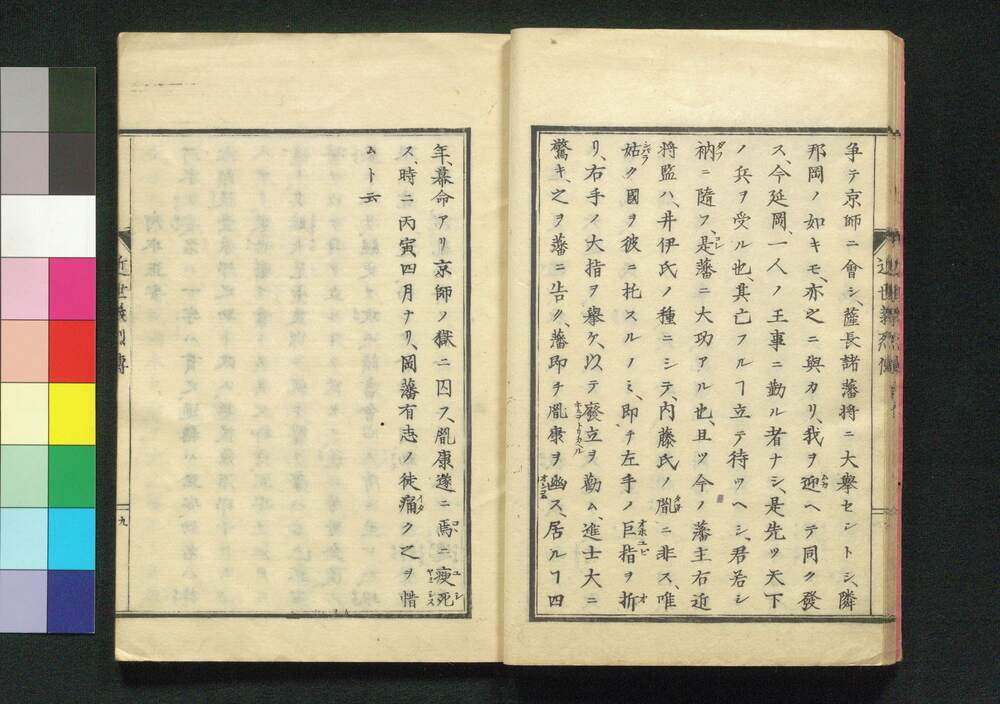 争テ京師ニ會シ、薩長諸藩將ニ大擧セントシ、隣
邦岡ノ如キモ、亦之ニ與カリ、我ヲ迎ヘテ同ク發
ス、今延岡、一人ノ王事ニ勤ル者ナシ、是先ツ天下
ノ兵ヲ受ル也、其亡フルヿ立テ待ツヘシ、君若シ
衲ニ隨フ、是藩ニ大功アル也、且ツ今ノ藩主右近
將監ハ、井伊氏ノ種ニシテ、内藤氏ノ胤ニ非ス、唯
姑ク國ヲ彼ニ托スルノミ、即チ左手ノ巨指ヲ折
リ、右手ノ大指ヲ擧ケ、以テ廢立ヲ勸ム、進士大ニ
驚キ、之ヲ藩ニ告ク、藩即チ胤康ヲ幽ス、居ルヿ四
年、幕命アリ京師ノ獄ニ囚ス、胤康遂ニ焉ニ瘐死
ス、時ニ丙寅四月ナリ、岡藩有志ノ徒痛ク之ヲ惜
ムト云
近世義烈傳
九